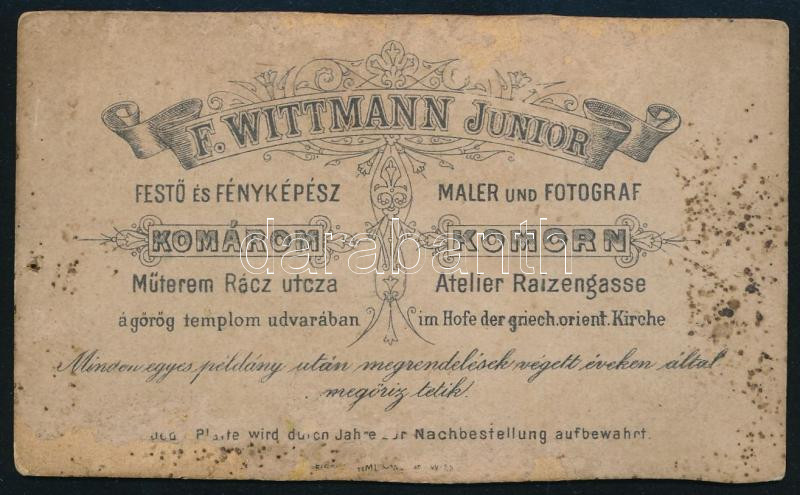 F. WITTMANN JUNIOR
FESTŐ ÉS FÉNYKÉPÉSZ
KOMÁROM
Műterem Rácz utcza
á görög templom udvarában
MALER UND FOTOGRAF
KOMORN
Atelier Raizengasse
im Hofe der griech. orient. Kirche
Minden egyes példány után megrendelések végett éveken által
megőriz tetik.
Platte wird durch Jahre zur Nachbestellung aufbewahrt.
darabanth